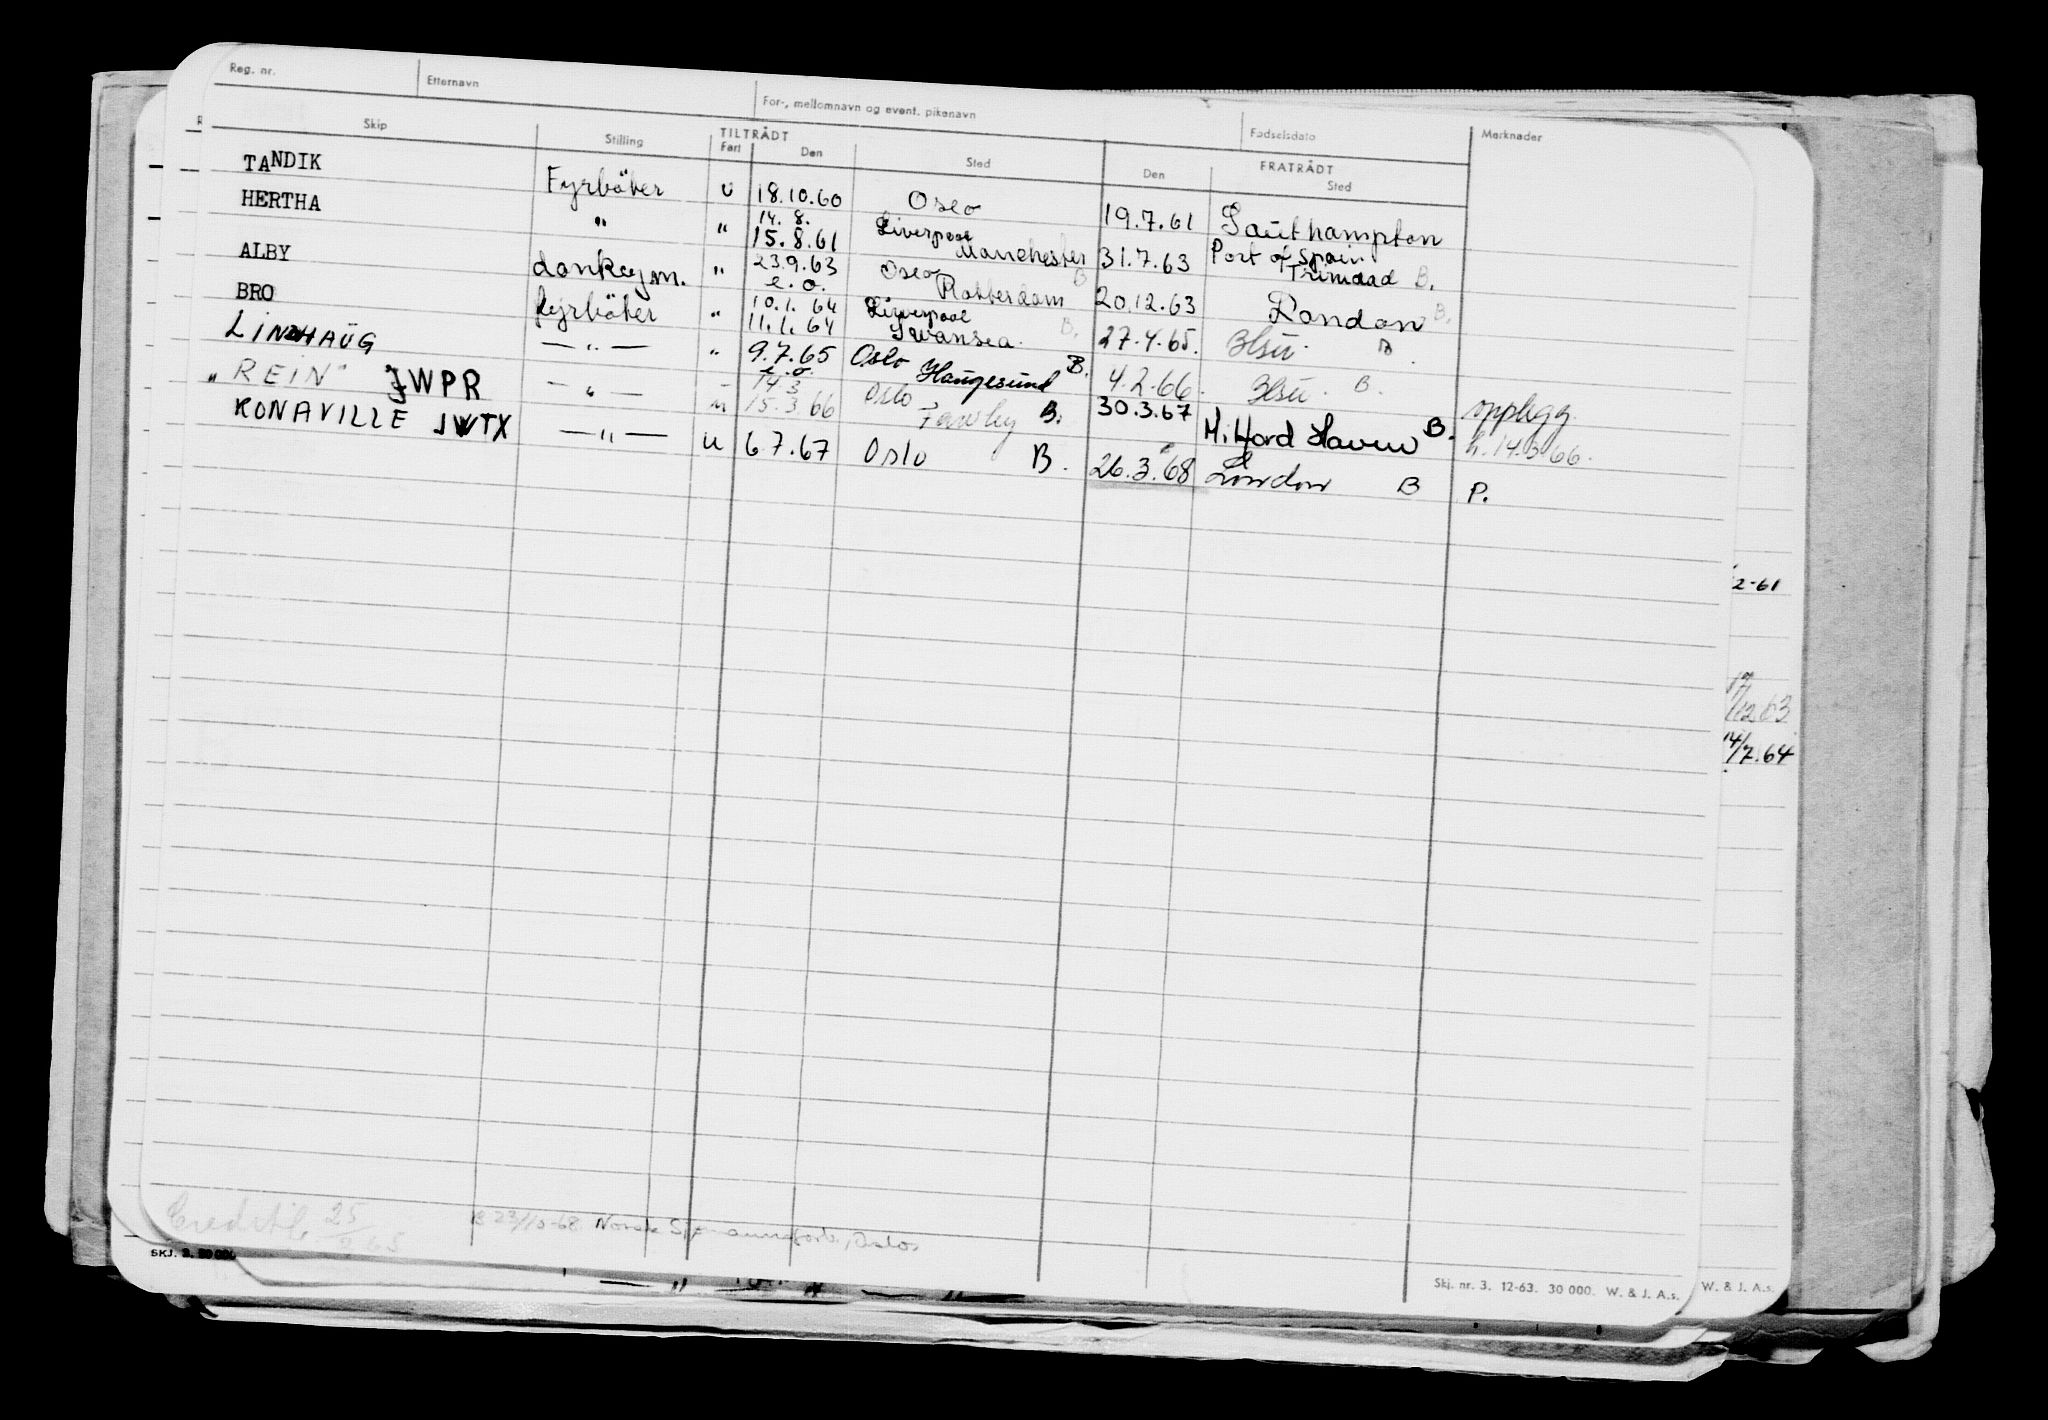 Reg. nr. Etternavn For-, mellomnavn og event. pikenavn Fødselsdato Merknader
Skip Stilling TILTRÅDT FRATRÅDT
Fart Den Sted Den Sted
TANDIK Fyrböter U 18.10.60 Oslo 19.7.61 Southampton
HERTHA " " 14.8. Liverpool
15.8.61 Manchester 31.7.63 Port of Spain Trinidad B.
ALBY donkeym. " 23.9.63 Oslo B
e.o. Rotterdam 20.12.63 London B.
BRO fyrböter " 10.1.64 Liverpool
11.1.64 Swansea B. 27.4.65. B
LINDHAUG — " — " 9.7.65 Oslo
e.o. Haugesund B. 4.2.66. B. opplegg.
"REIN" JWPR — " — 14.3 Oslo
15.3.66 Fawley B. 30.3.67 Milford Haven B. h. 14.3.66.
RONAVILLE JWTX — " — U 6.7.67 Oslo B. 26.3.68 London B P.
2-61
17/12 63
14/7.64
25
B 23/10-68 Norsk Sjømannsforb., Oslo.
SKJ. 3. 30 000
Skj. nr. 3. 12-63. 30 000. W. & J. A.s.
W. & J. A.s.